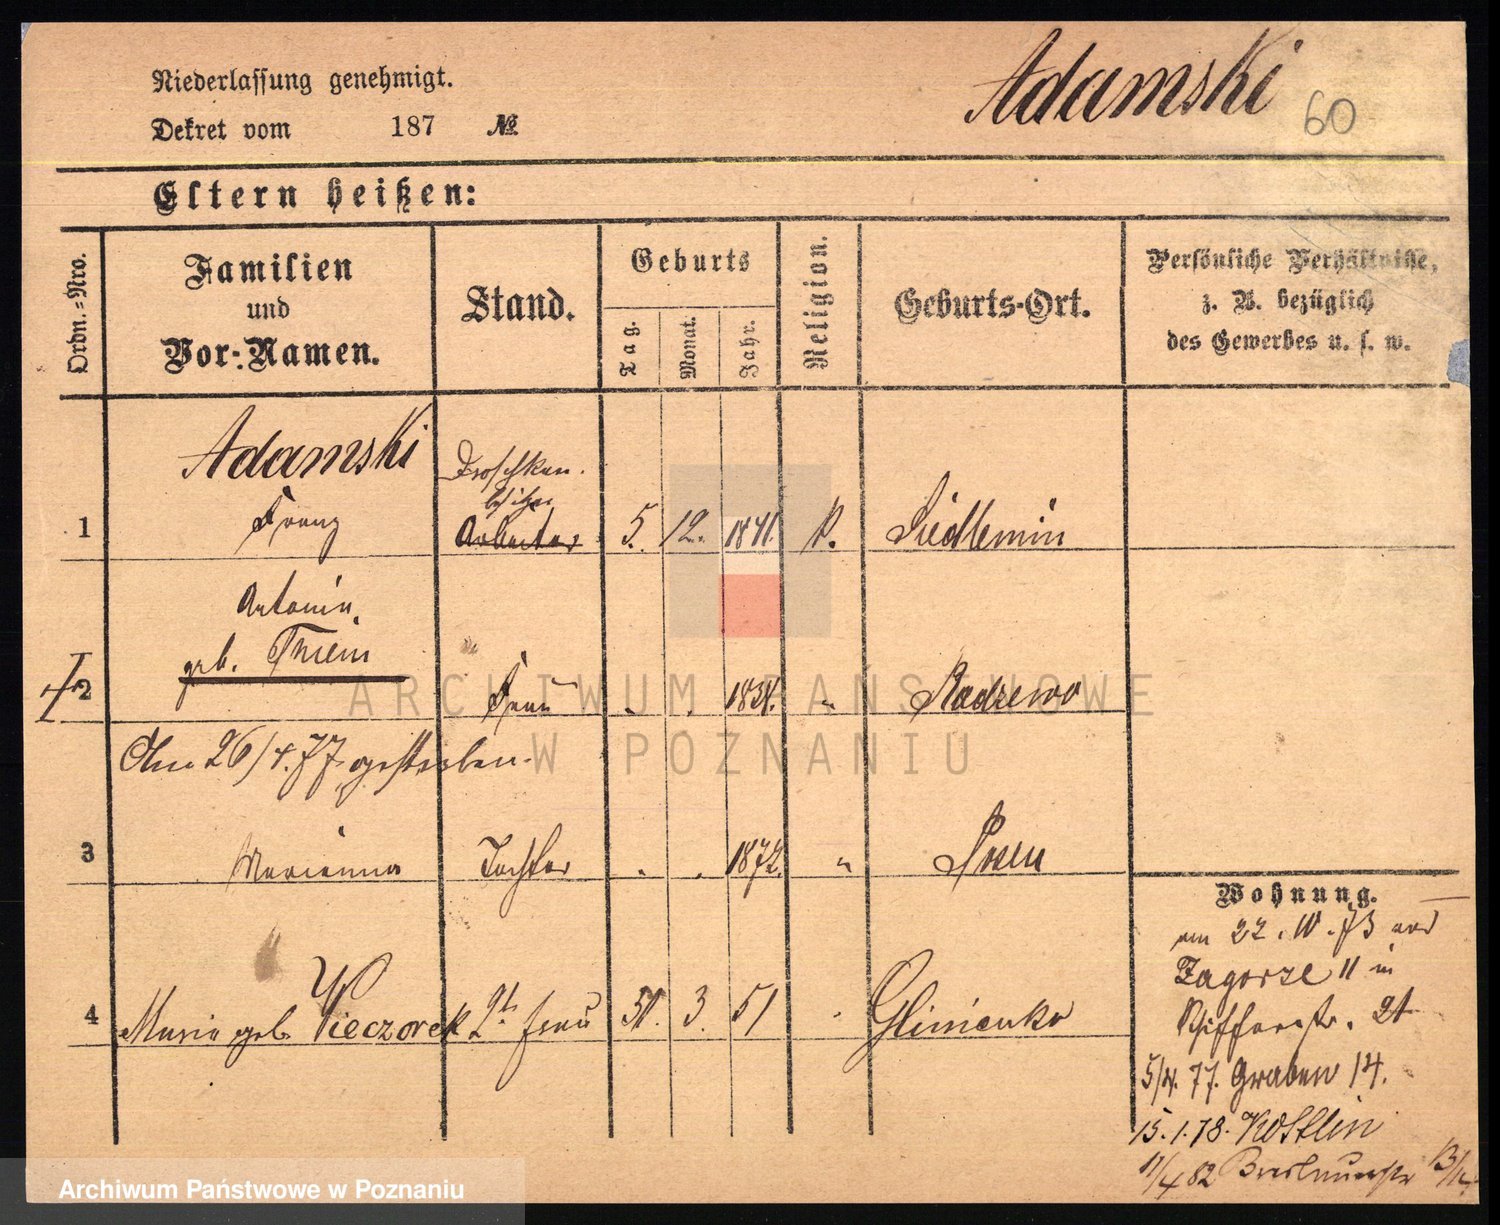 Niederlassung genehmigt.
Dekret vom 187 №
Adamski
60
Eltern heißen:
Ordn.=Nro.
Familien
und
Vor-Namen.
Stand.
Geburts
Tag.
Monat.
Jahr.
Religion.
Geburts-Ort.
Persönliche Verhältnisse,
z. B. bezüglich
des Gewerbes u. s. w.
Adamski
Droschken-
besitzer
1 Franz Arbeiter 5. 12. 1841. K. Siedlemin
Antonie
geb. Thiem
2 Frau 1834. " Radzewo
Am 26/4.77 gestorben.
3 Marianna Tochter 1872. " Posen
4 Marie geb. Wieczorek 2te Frau 31. 3. 51 Glinienko
Wohnung.
am 22. IV. 73 aus
Zagorze 11 in
Schifferstr. 21
5/4. 77. Graben 14.
15. 1. 78. Wostlin
11/4 82
ARCHIWUM PAŃSTWOWE
W POZNANIU
Archiwum Państwowe w Poznaniu